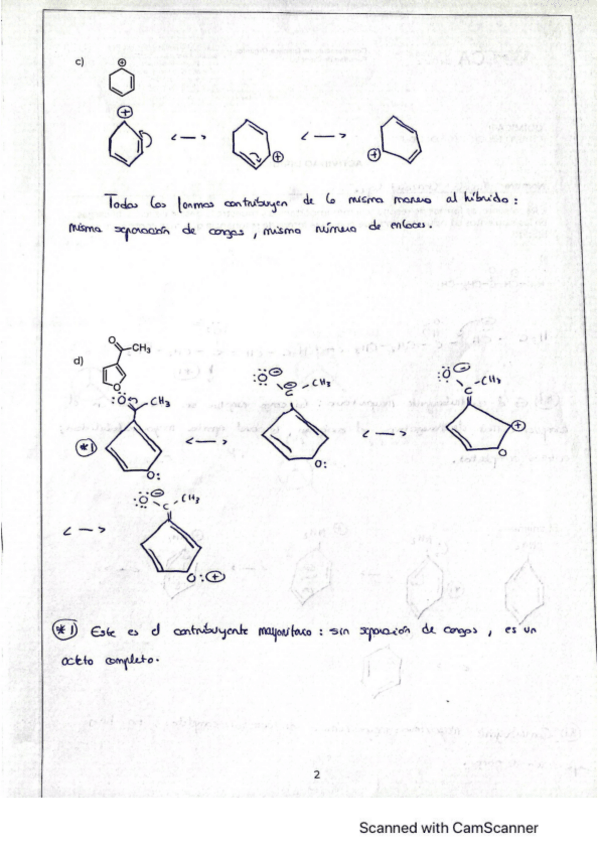 c)
⊕
⊕
<-->
⊕
<-->
⊕
Todas las formas contribuyen de la misma manera al híbrido:
misma separación de cargas, mismo número de enlaces.
d)
O
CH3
O
:Ö
CH3
*1
O:
<-->
:Ö: ⊖
C
CH3
O:
<-->
:Ö: ⊖
C
CH3
⊕
O
<-->
:Ö: ⊖
C
CH3
O: ⊕
*1 Este es el contribuyente mayoritario: sin separación de cargas, es un
octeto completo.
2
Scanned with CamScanner